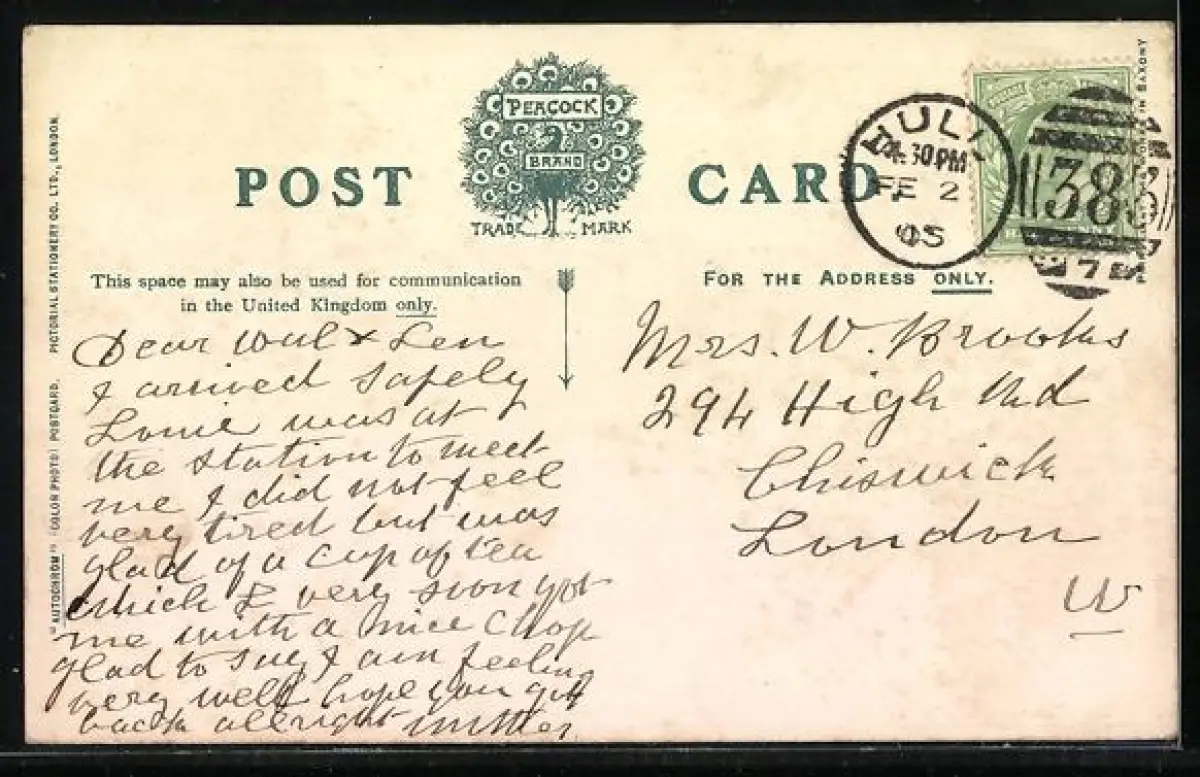 POST CARD
PEACOCK
BRAND
TRADE MARK
This space may also be used for communication
in the United Kingdom only.
FOR THE ADDRESS ONLY.
HULL
30 PM
FE 2
05
383
"AUTOCHROM" (COLOR PHOTO) POSTCARD. PICTORIAL STATIONERY CO. LTD., LONDON.
IN SAXONY
Dear Will & Len
I arrived safely
Louie was at
the station to meet
me I did not feel
very tired but was
glad of a cup of tea
which I very soon got
me with a nice Chop
glad to say I am feeling
very well hope you got
back allright Mother
Mrs. W. Brooks
294 High Rd
Chiswick
London
W